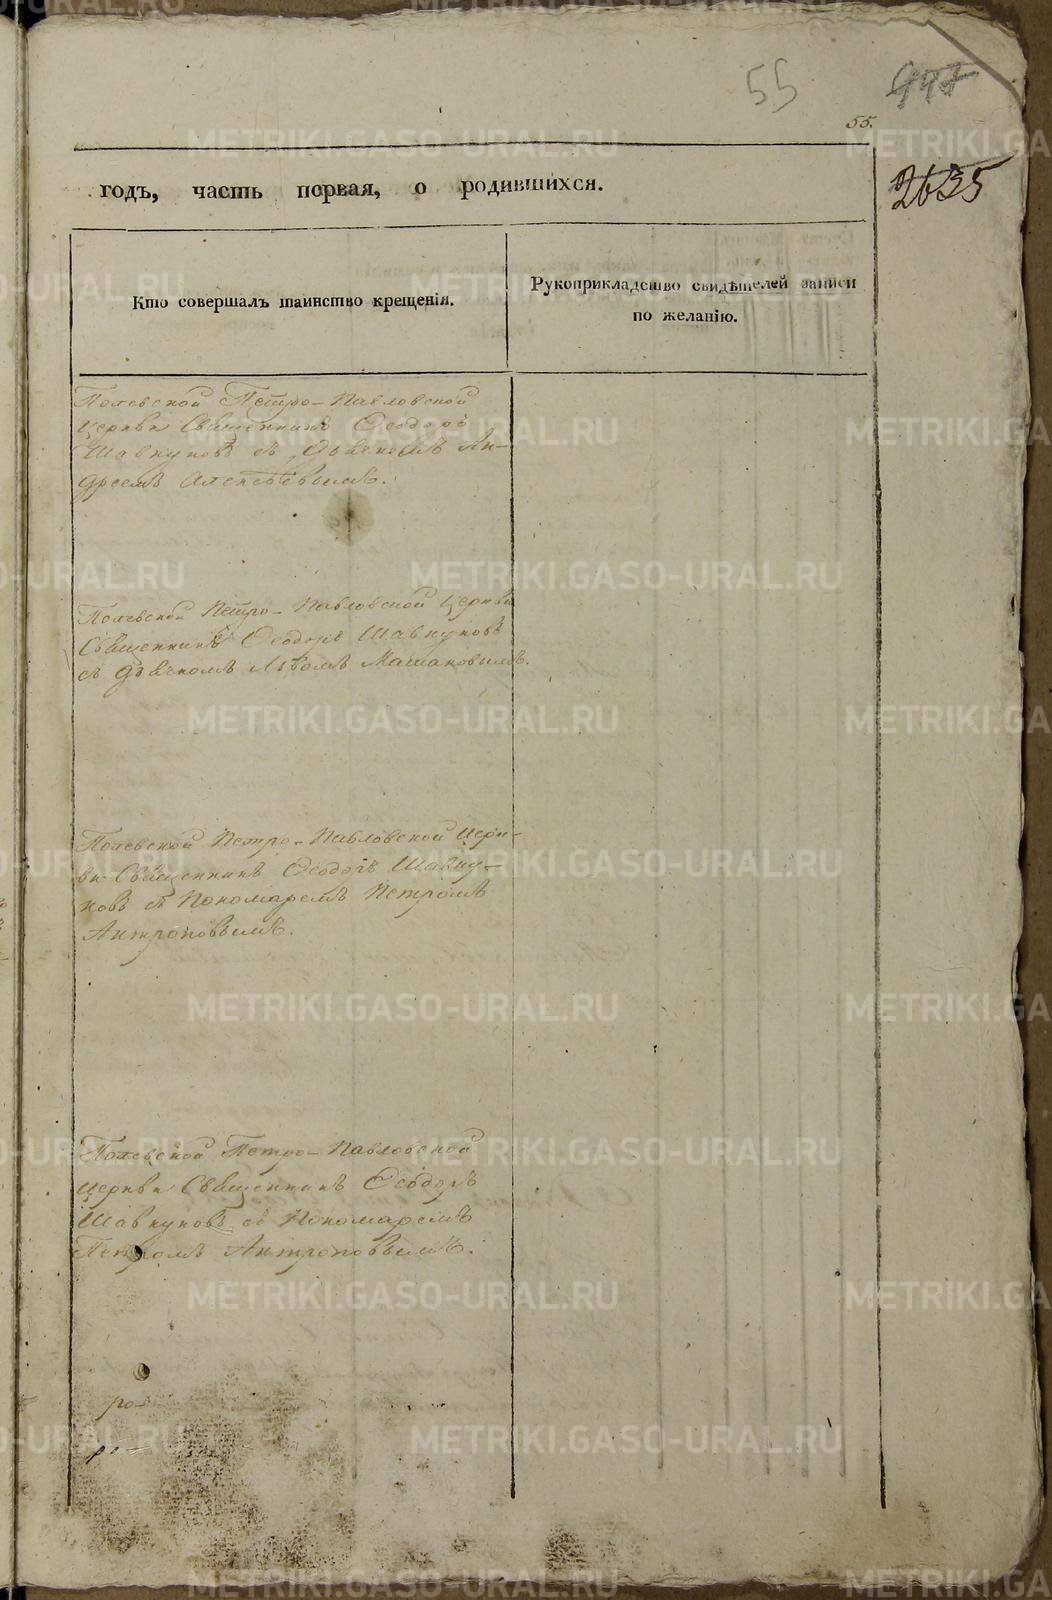 55
55.
2635
годъ, часть первая, о родившихся.
Кто совершалъ таинство крещенія.
Рукоприкладство свидѣтелей записи
по желанію.
Полевской Петро-Павловской
церкви Священникъ Ѳеодоръ
Шавкуновъ съ Дьячкомъ Ан-
дреемъ Алексѣевымъ.
Полевской Петро-Павловской церкви
Священникъ Ѳеодоръ Шавкуновъ
съ дьячкомъ Львомъ Машановымъ.
Полевской Петро-Павловской церк-
ви Священникъ Ѳеодоръ Шавку-
новъ съ Пономаремъ Петромъ
Антроповымъ.
Полевской Петро-Павловской
церкви Священникъ Ѳеодоръ
Шавкуновъ съ Пономаремъ
Петромъ Антроповымъ.
METRIKI.GASO-URAL.RU